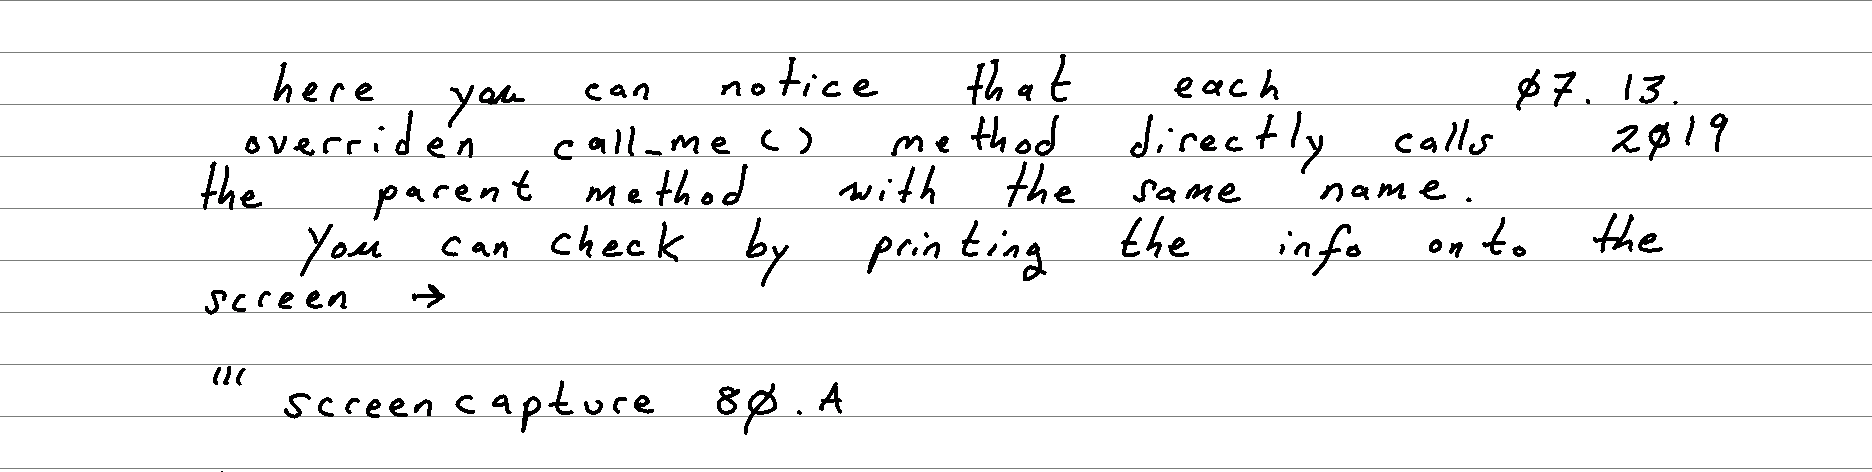 here you can notice that each ø7. 13.
overriden call_me () method directly calls 2ø19
the parent method with the same name.
You can check by printing the info onto the
screen →
''' screen capture 8ø.A